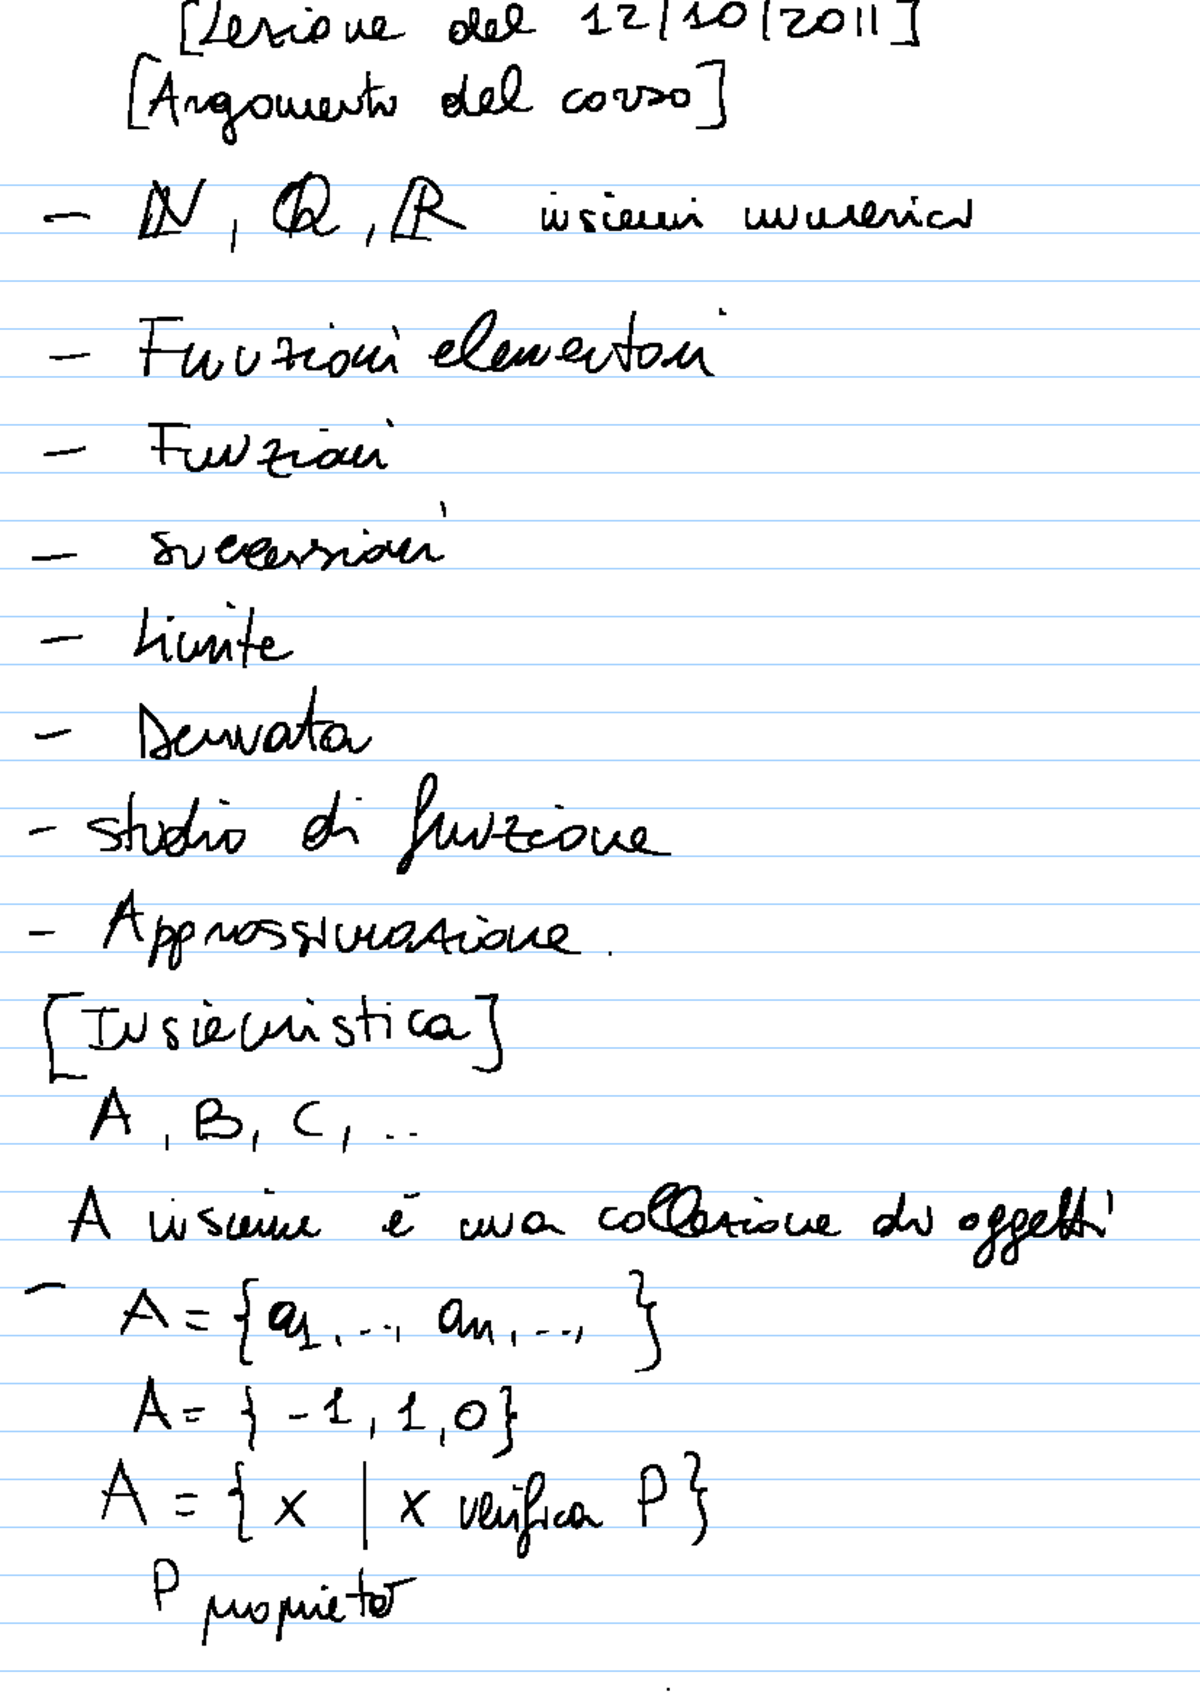 [Lezione del 12/10/2011]
[Argomento del corso]
- ℕ, ℚ, ℝ insiemi numerici
- Funzioni elementari
- Funzioni
- successioni
- Limite
- Derivata
- studio di funzione
- Approssimazione.
[Insiemistica]
A, B, C, ..
A insieme è una collezione di oggetti
- A = {a₁, ..., aₙ, ..., }
A = {-1, 1, 0}
A = {x | x verifica P}
P proprietà